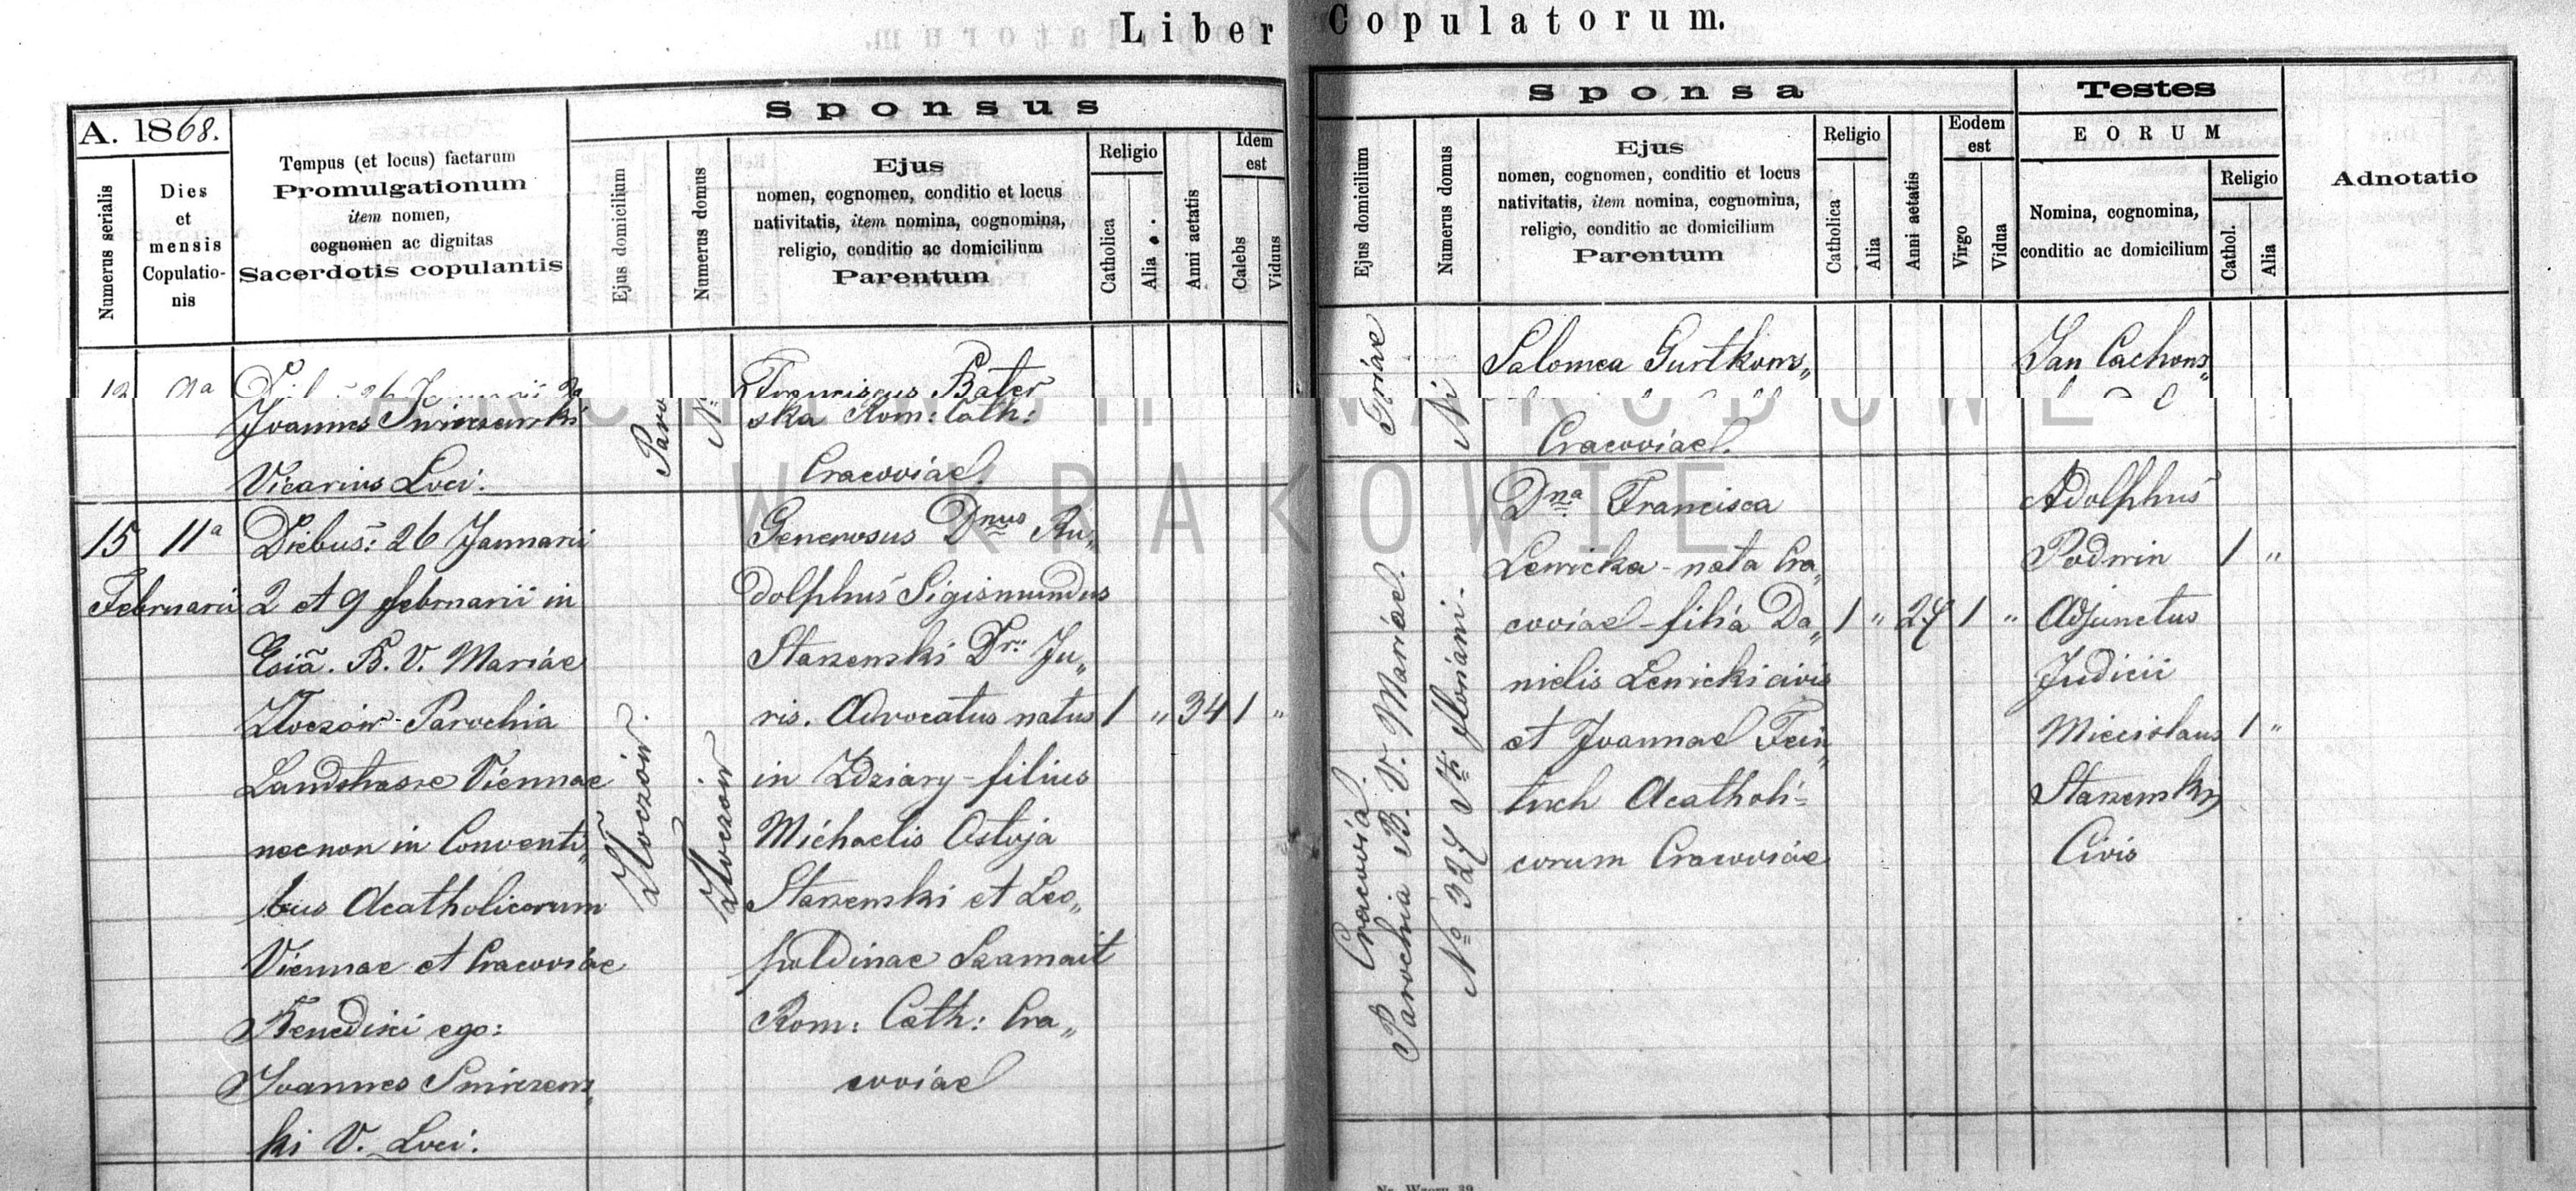 Liber Copulatorum.
A. 1868.
Numerus serialis
Dies
et
mensis
Copulatio-
nis
Tempus (et locus) factarum
Promulgationum
item nomen,
cognomen ac dignitas
Sacerdotis copulantis
Sponsus
Ejus domicilium
Numerus domus
Ejus
nomen, cognomen, conditio et locus
nativitatis, item nomina, cognomina,
religio, conditio ac domicilium
Parentum
Religio
Catholica
Alia
Anni aetatis
Idem
est
Calebs
Viduus
Sponsa
Ejus domicilium
Numerus domus
Ejus
nomen, cognomen, conditio et locus
nativitatis, item nomina, cognomina,
religio, conditio ac domicilium
Parentum
Religio
Catholica
Alia
Anni aetatis
Eodem
est
Virgo
Vidua
Testes
EORUM
Nomina, cognomina,
conditio ac domicilium
Religio
Cathol.
Alia
Adnotatio
9a
26
Franciscus Bater
Salomea Gurtkows„
Jan Cachows„
Joannes
Vicarius Loci.
ska Rom: Cath:
Cracoviae.
Cracoviae.
W KRAKOWIE
15 11a
Februarii
Diebus: 26 Januarii
2 et 9 februarii in
Ecia. B. V. Mariae
Złoczów - Parochia
Landstrasse Viennae
necnon in Conventi„
bus Acatholicorum
Viennae et Cracoviae
Benedixi ego:
Joannes
ki V. Loci.
Złoczów.
Złoczów
Generosus Dnus Ru„
dolphus Sigismundus
Starzewski Dr. Ju„
ris. Advocatus natus 1 " 34 1 "
in Zdziary - filius
Michaelis Ostoja
Starzewski et Leo„
poldinae Szamait
Rom: Cath: Cra„
coviae
Cracovia.
Parochia B. V. Mariae.
No 327 Sti Floriani.
Dna Francisca
Lewicka - nata Cra„
coviae - filia Da„ 1 " 27 1 "
nielis Lewicki civis
et Joannae Fein„
tuch Acatholi=
corum Cracoviae
Adolphus
Podwin 1 "
Adjunctus
Judicii
Miecislaus 1 "
Starzewski
Civis